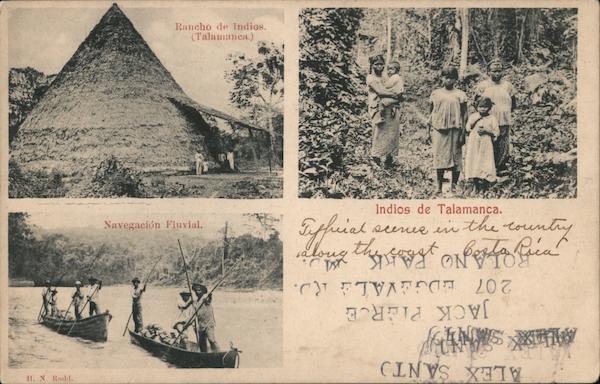 Rancho de Indios.
(Talamanca.)
Indios de Talamanca.
Navegación Fluvial.
Typical scenes in the country
along the coast Costa Rica
ROLAND PARK MD.
207 EDGEVALE RD.
JACK PIERCE
ALEX SANT)
ALEX SANT)
H. N. Rudd.